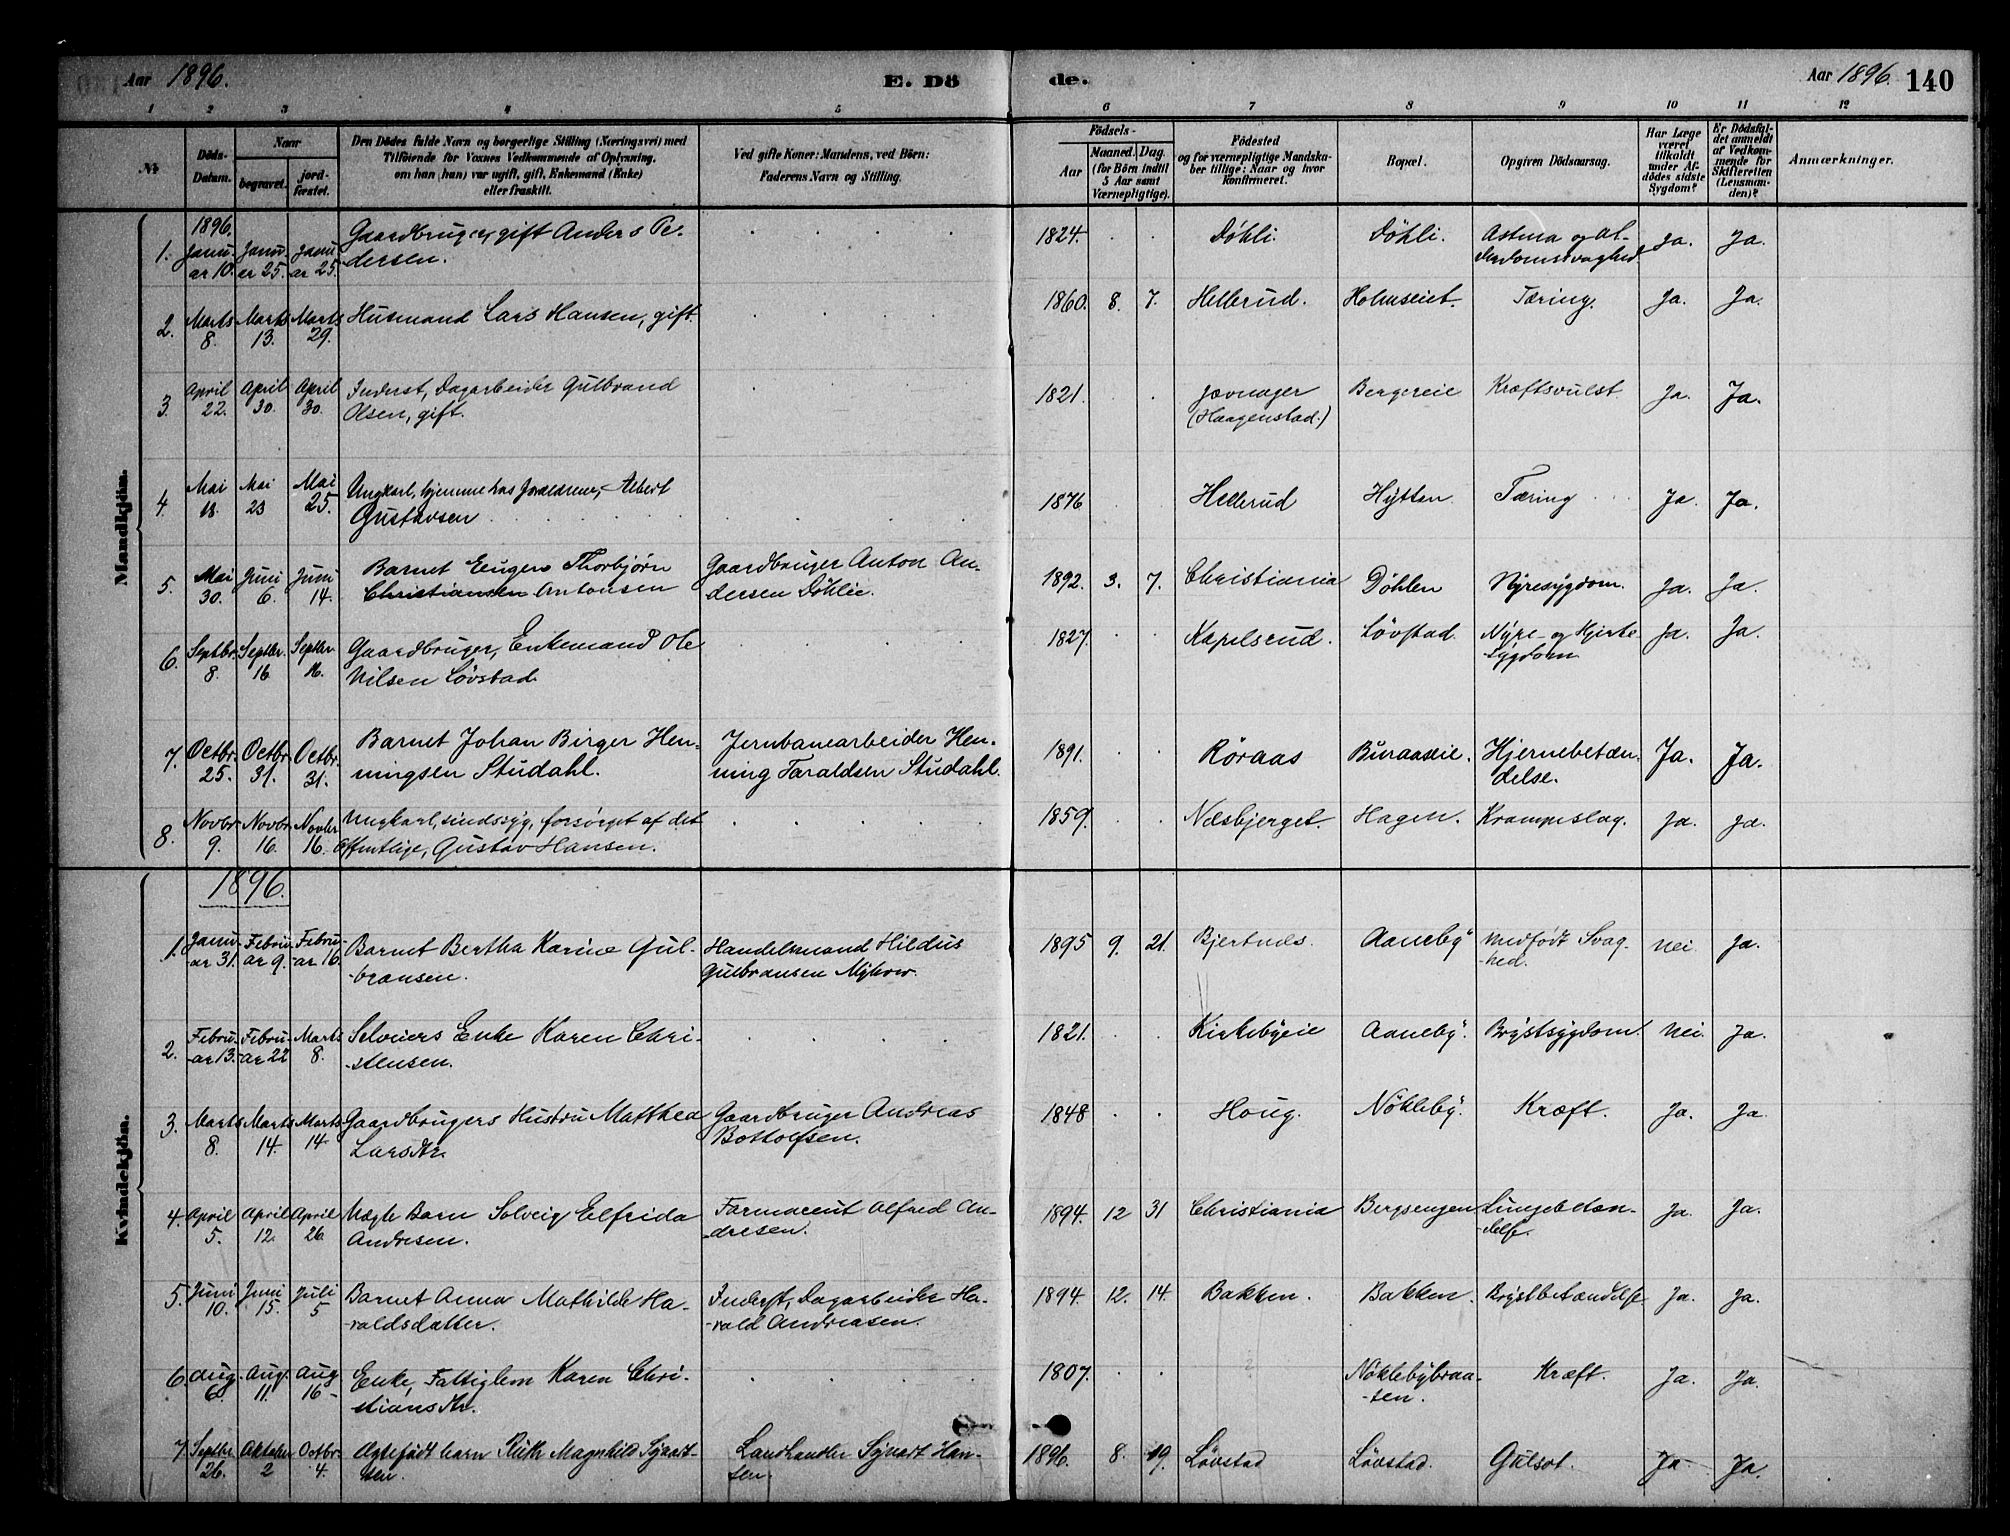 Aar 1896. E. Dö de. Aar 1896. 140
1 2 3 4 5 6 7 8 9 10 11 12
No.
Döds-Datum.
Naar
begravet.
jordfæstet.
Den Dödes fulde Navn og borgerlige Stilling (Næringsvei) med
Tilföiende for Voxnes Vedkommende af Oplysning,
om han (hun) var ugift, gift, Enkemand (Enke)
eller fraskilt.
Ved gifte Koner: Mandens, ved Börn:
Faderens Navn og Stilling.
Födsels-
Aar
Maaned. Dag.
(for Börn indtil
5 Aar samt
Værnepligtige).
Födested
og for værnepligtige Mandska-
ber tillige: Naar og hvor
Konfirmeret.
Bopæl.
Opgiven Dödsaarsag.
Har Læge
været
tilkaldt
under Af-
dödes sidste
Sygdom?
Er Dödsfal-
det anmeldt
af Vedkom-
mende for
Skifteretten
(Lensman-
den)?
Anmærkninger.
Mandkjön.
1896.
1. Januar 10. Januar 25. Januar 25. Gaardbruger, gift Anders Pe-
dersen. 1824. Döhli. Döhli. Astma og Al-
derdomssvaghed Ja. Ja.
2. Marts 8. Marts 13. Marts 29. Husmand Lars Hansen, gift. 1860. 8. 7. Hellerud. Holmseiet. Tæring. Ja. Ja.
3. April 22. April 30. April 30. Inderst, Dagarbeider Gulbrand
Olsen, gift. 1821. Jævnager
(Haagenstad.) Bergereie Kræftsvulst Ja. Ja.
4. Mai 18. Mai 23 Mai 25. Ungkarl, hjemme hos Forældrene, Albert
Gustavsen 1876 Hellerud Hytten Tæring Ja. Ja.
5. Mai 30. Juni 6. Juni 14. Barnet Eugen Thorbjørn
Christiansen Antonsen Gaardbruger Anton An-
dersen Döhlie. 1892. 3. 7. Christiania Döhlen Nyresygdom. Ja. Ja.
6. Septbr. 8. Septbr. 16. Septbr. 16. Gaardbruger, Enkemand Ole
Nilsen Lövstad. 1827. Kapelsrud. Lövstad. Nyre- og Hjerte-
sygdom Ja. Ja.
7. Octbr. 25. Octbr. 31. Octbr. 31. Barnet Johan Birger Hen-
ningsen Studahl. Jernbanearbeider Hen-
ning Taraldsen Studahl. 1891. Röraas Buraaseie. Hjernebetæn-
delse. Ja. Ja.
8. Novbr. 9. Novbr. 16. Novbr 16. Ungkarl, sindssyg, forsörget af det
Offentlige, Gustav Hansen. 1859. Næsbjerget. Hagen. Krampeslag. Ja. Ja.
Kvindekjön.
1896.
1. Januar 31. Februar 9. Februar 16. Barnet Bertha Karine Gul-
bransen. Handelsmand Hildus
Gulbransen Myhrer. 1895 9. 21. Bjertnes. Aaneby Medfödt Svag-
hed. Nei. Ja.
2. Februar 13. Februar 22 Marts 8. Selveiers Enke Karen Chri-
stensen. 1821. Kirkebyeie Aaneby. Brystsygdom. Nei. Ja.
3. Marts 8. Marts 14. Marts 14 Gaardbrugers Hustru Matthea
Larsdtr. Gaardbruger Andreas
Bottolfsen. 1848 Houg. Nökleby. Kræft. Ja. Ja.
4. April 5. April 12. April 26. Ægte Barn Solveig Elfrida
Andresen. Farmaceut Alfred An-
dresen. 1894. 12 31 Christiania Bergsengen Lungebetæn-
delse. Ja. Ja.
5. Juni 10. Juni 15. Juli 5 Barnet Anna Mathilde Ha-
raldsdatter. Inderst, Dagarbeider Ha-
rald Andreasen. 1894. 12. 14. Bakken. Bakken. Brystbetændelse Ja. Ja.
6. Aug. 6. Aug. 11. Aug 16 Enke, Fattiglem Karen Chri-
stiansdtr. 1807. Nöklebybraa-
ten. Kræft. Ja. Ja.
7. Septbr. 26. Oktober 2 Octbr. 4. Ægtefödt barn Ruth Magnhild Syvart-
sen. Landhandler Syvart Han-
sen 1896. 8. 19. Lövstad Lövstad. Gulsot. Ja Ja.